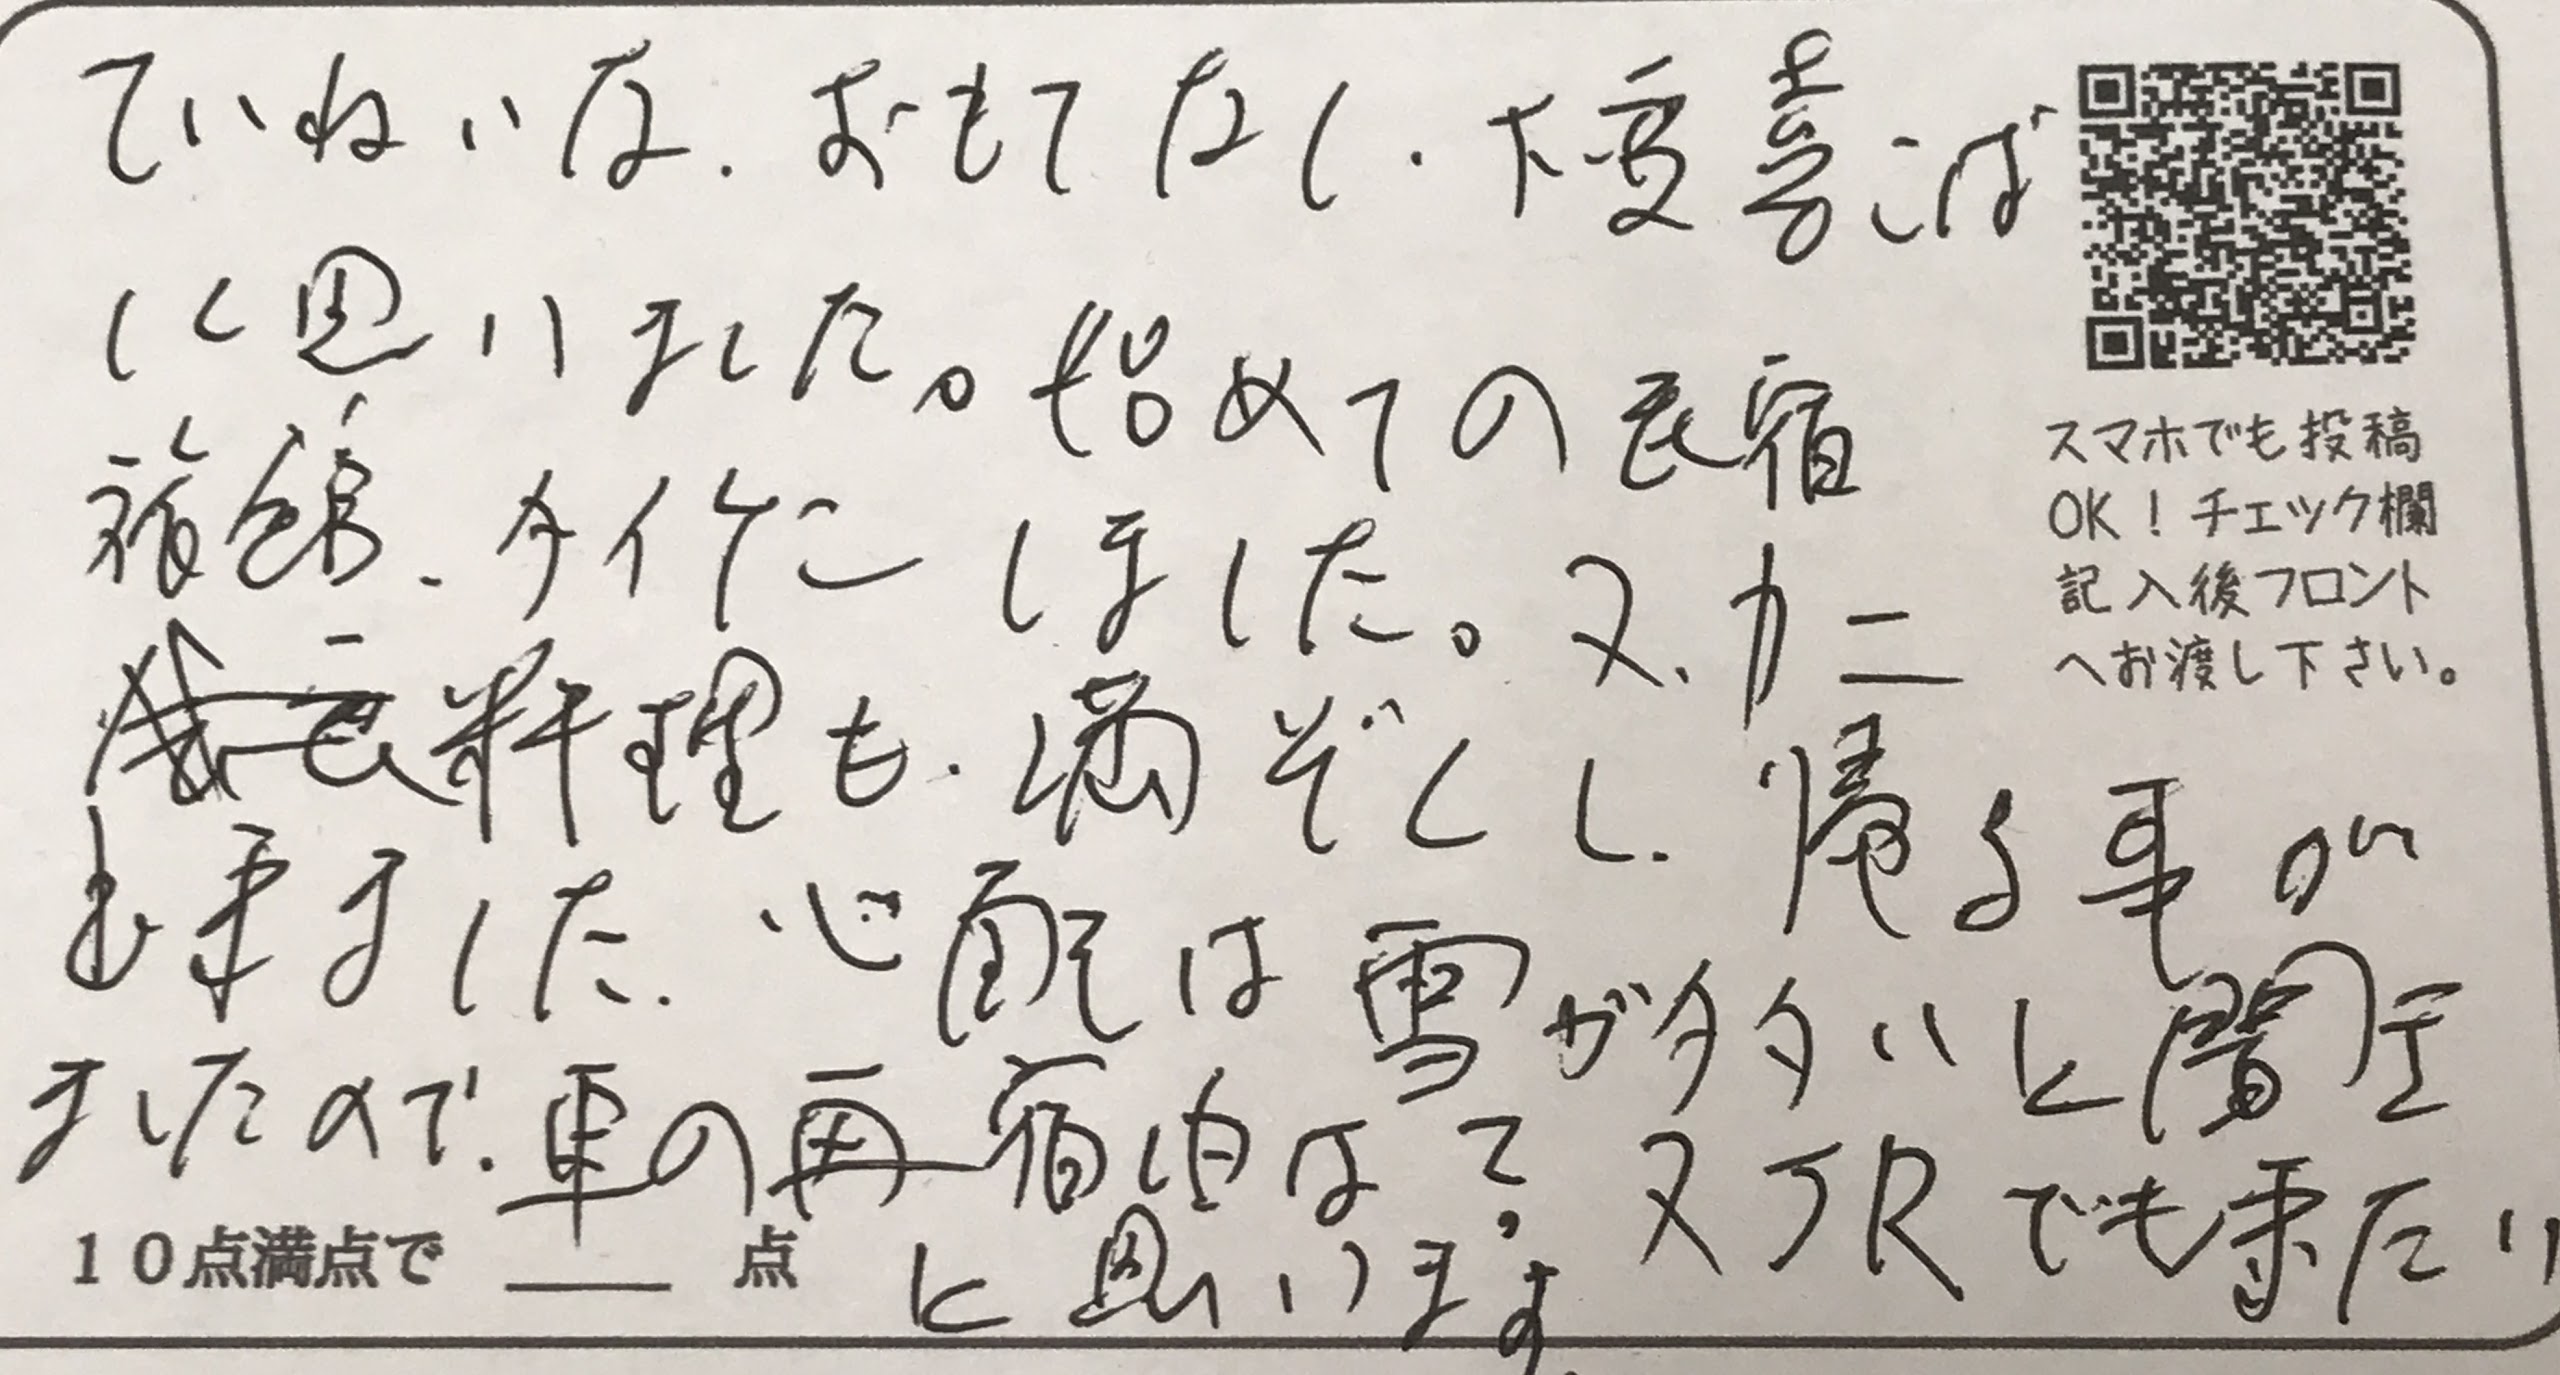 ていねいな、おもてなし、大変喜こば
しく思いました。始めての民宿
旅館、タイケンしました。又、カニ
料理も、満ぞくし、帰る事が
出来ました。心配は雪が多いと聞き
ましたので、車の再宿泊は?又JRでも来たい
と思います。
スマホでも投稿
OK!チェック欄
記入後フロント
へお渡し下さい。
10点満点で 点